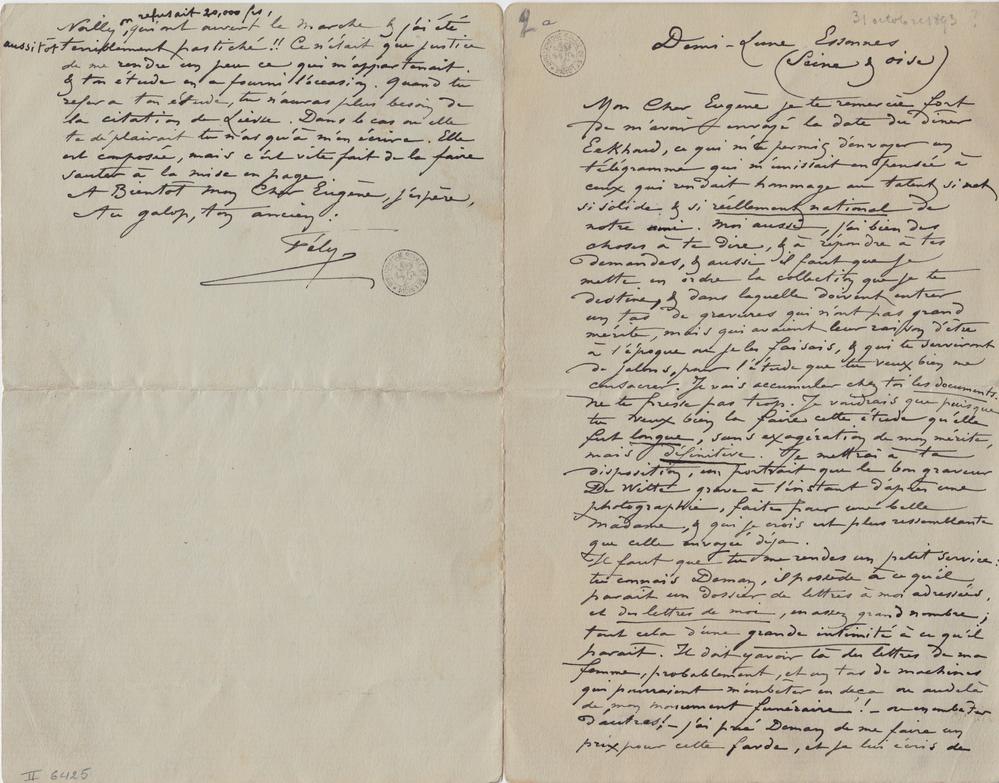 2a
31 octobre 1893 ?
Demi-Lune Essonnes
(Seine & oise)
Mon Cher Eugène je te remercie fort
de m'avoir envoyé la date du dîner
Eekhoud, ce qui m'a permis d'envoyer un
télégramme qui m'unissait en pensée à
ceux qui rendait hommage au talent si net
si solide & si réellement national de
notre ami. Moi aussi, j'ai bien des
choses à te dire, & à répondre à tes
demandes, & aussi il faut que je
mette en ordre la collection que je te
destine, & dans laquelle doivent entrer
un tas de gravures qui n'ont pas grand
mérite, mais qui avaient leur raison d'être
à l'époque ou je les faisais, & qui te serviront
de jalons, pour l'étude que tu veux bien me
consacrer. Je vais accumuler chez toi les documents.
ne te presse pas trop. Je voudrais que puisque
tu veux bien la faire cette étude qu'elle
fut longue, sans exagération de mon mérite,
mais définitive. Je mettrai à ta
disposition, un portrait que le bon graveur
De Witte grave à l'instant d'après une
photographie, faite pour une belle
Madame, & qui je crois est plus ressemblante
que celle envoyée déja.
Il faut que tu me rendes un petit service:
tu connais Deman, il possède à ce qu'il
parait un dossier de lettres à moi adressées,
et des lettres de moi, en assez grand nombre;
tout cela d'une grande intimité à ce qu'il
parait. Il doit y avoir là des lettres de ma
femme, probablement, et un tas de machines
qui pourraient m'embêter en deça ou audelà
de mon monument funéraire! – ou embêter
d'autres! – j'ai prié Deman de me faire un
prix pour cette farde, et je lui écris de
on refusait 20,000 frs,
Noilly, qui ont ouvert le marche & j'ai été
aussitôt terriblement pastiché!! Ce n'était que justice
de me rendre un peu ce qui m'appartenait.
& ton étude en a fourni l'occasion. Quand tu
refera ton étude, tu n'auras plus besoin de
la citation de Liesse. Dans le cas ou elle
te déplairait tu n'as qu'à m'en écrire. Elle
est composée, mais c'est vite fait de la faire
sauter à la mise en page.
A Bientot mon Cher Eugène, j'espère,
Au galop, ton ancien.
Fély
II 6425